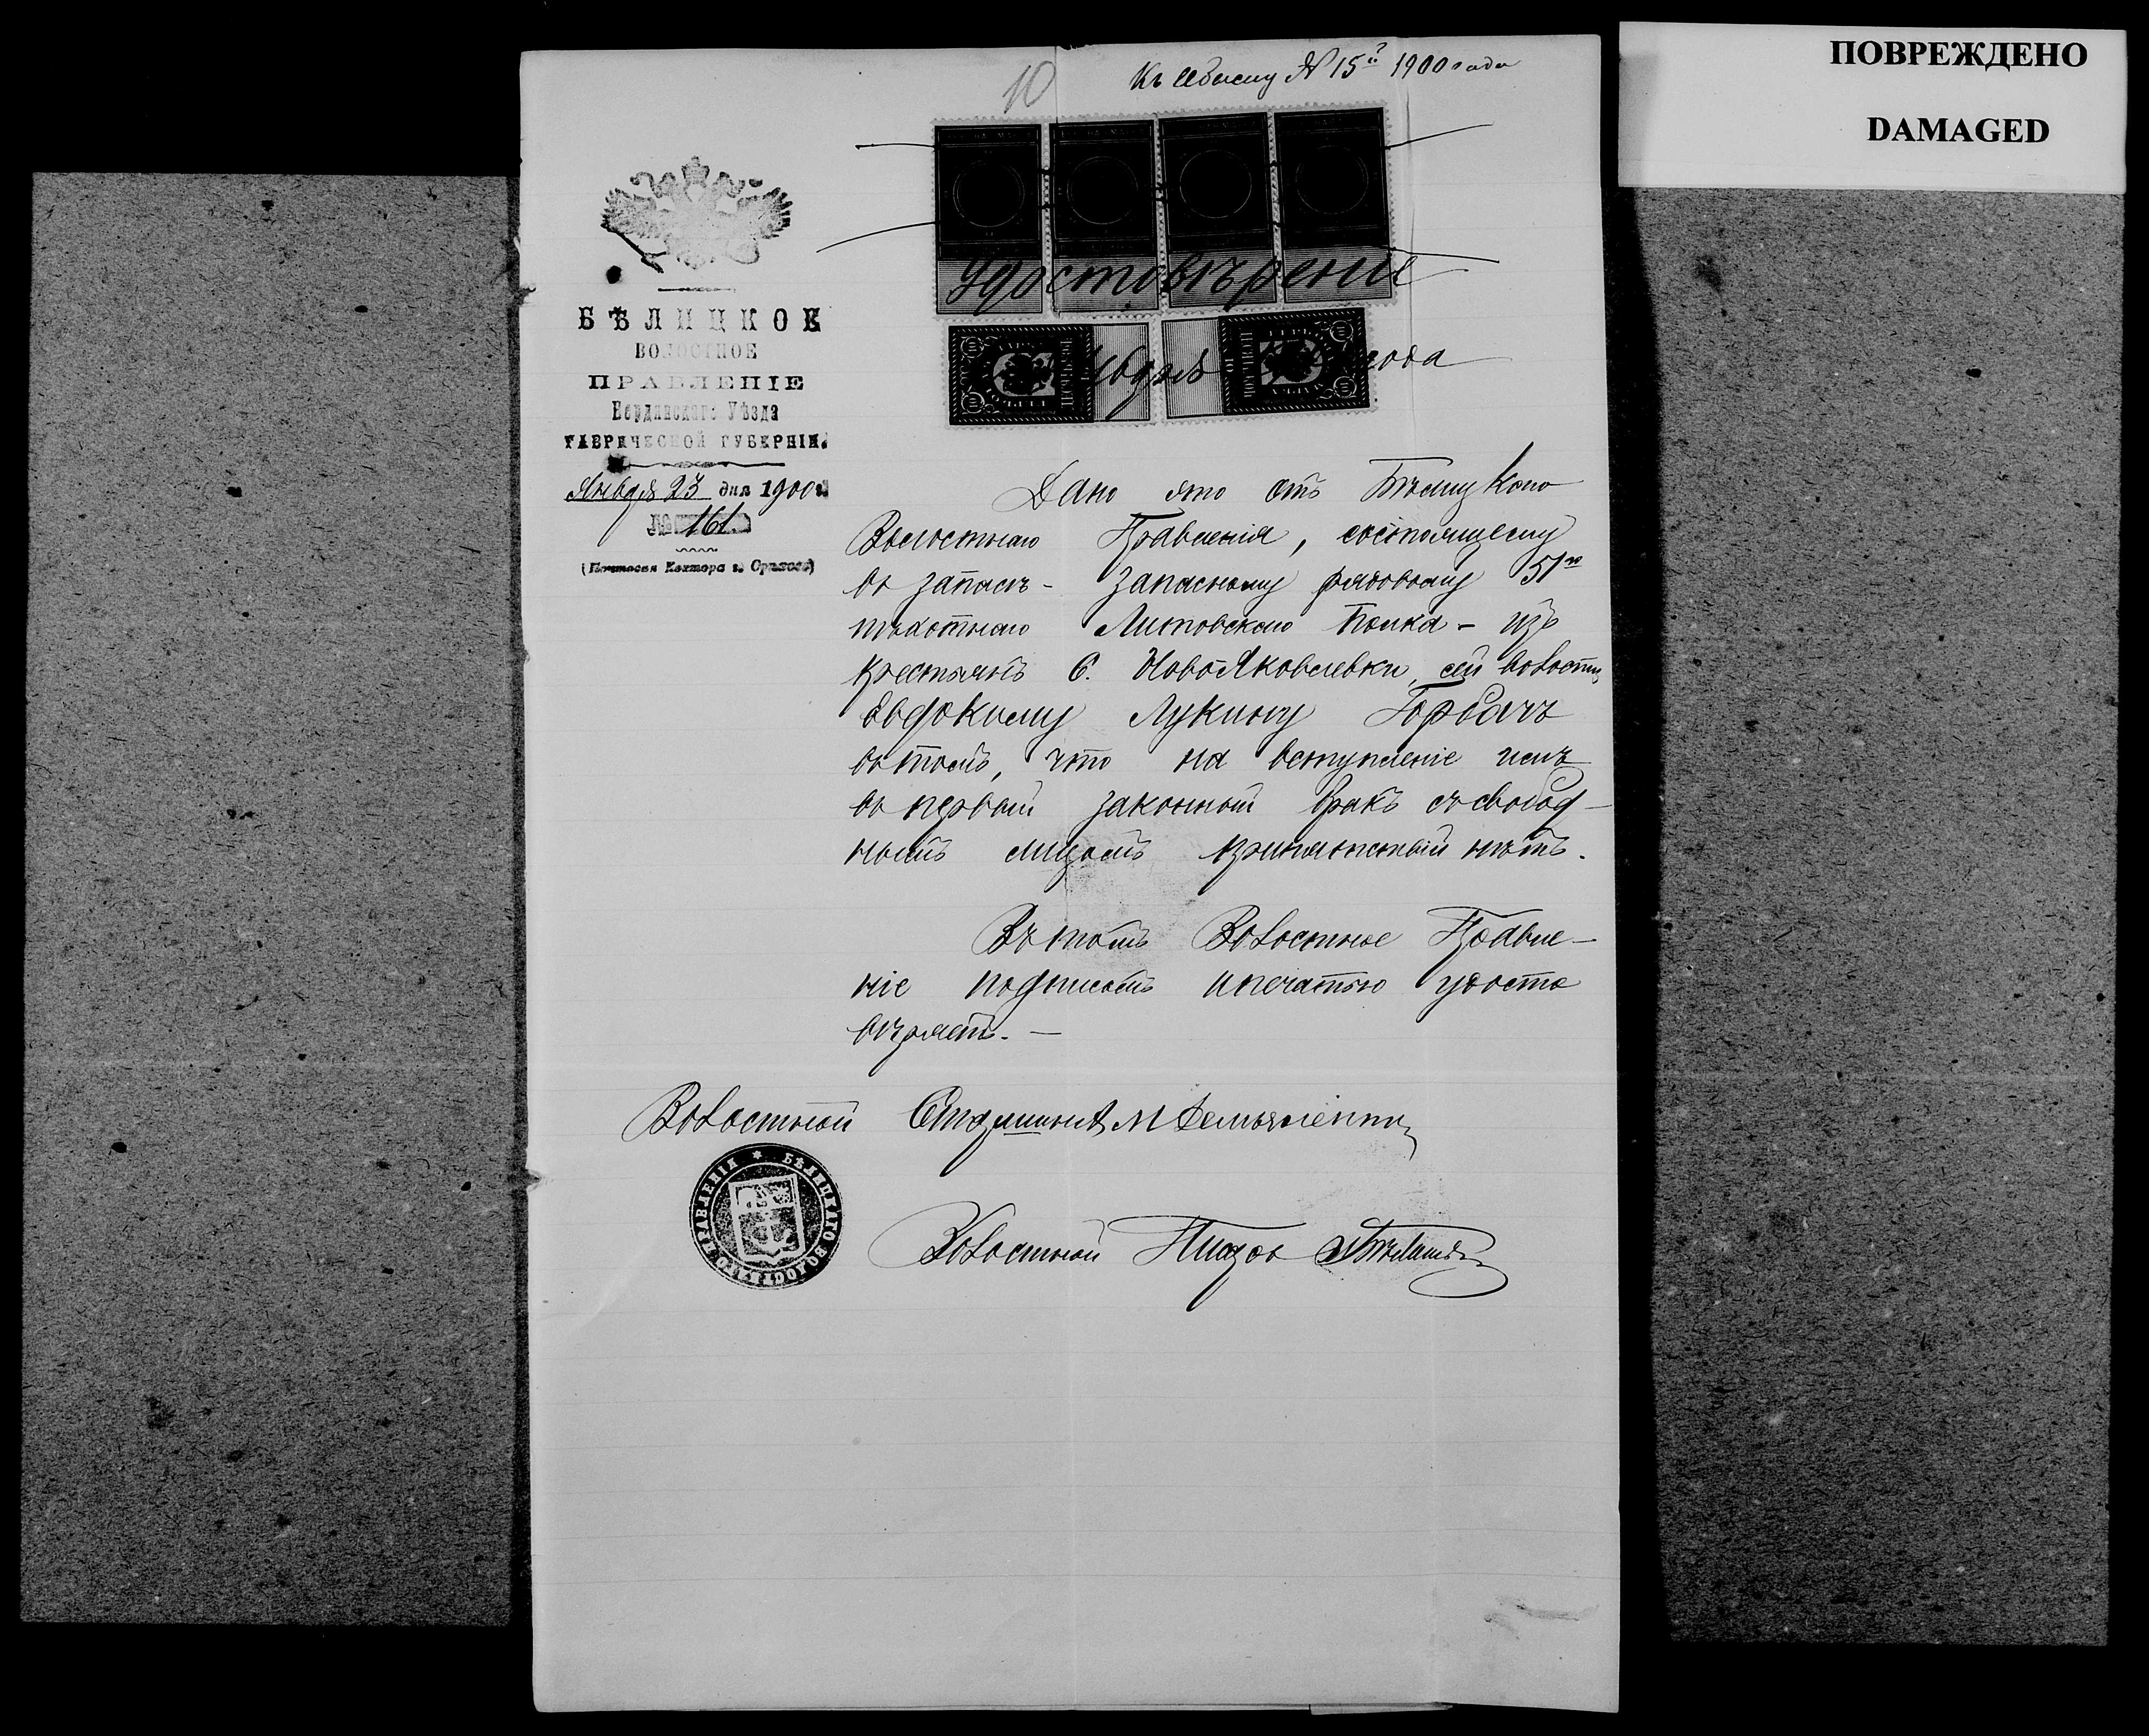 ПОВРЕЖДЕНО
DAMAGED
10
Къ обыску № 15й 1900 года
БѢЛИЦКОЕ
ВОЛОСТНОЕ
ПРАВЛЕНІЕ
Бердянскаго Уѣзда
ТАВРИЧЕСКОЙ ГУБЕРНІИ.
Января 23 дня 1900 г.
№ 161.
(Почтовая Контора г. Орѣховъ)
Удостовѣреніе
года
Дано это отъ Бѣлицкого
Волостнаго Правленія, состоящему
въ запасѣ - запасному рядовому 51го
пѣхотнаго Литовскаго полка - изъ
крестьянъ с. НовоЯковлевки, сей волости,
Евдокиму Лукину Горбачъ
въ томъ, что на вступленіе имъ
въ первый законный бракъ съ свобод-
нымъ лицомъ препятствій нѣтъ.
Въ томъ Волостное Правле-
ніе подписомъ и печатью удосто
вѣряетъ. —
Волостной Старшина М Демьяненко
БѢЛИЦКАГО ВОЛОСТНАГО ПРАВЛЕНІЯ
Волостной Писарь